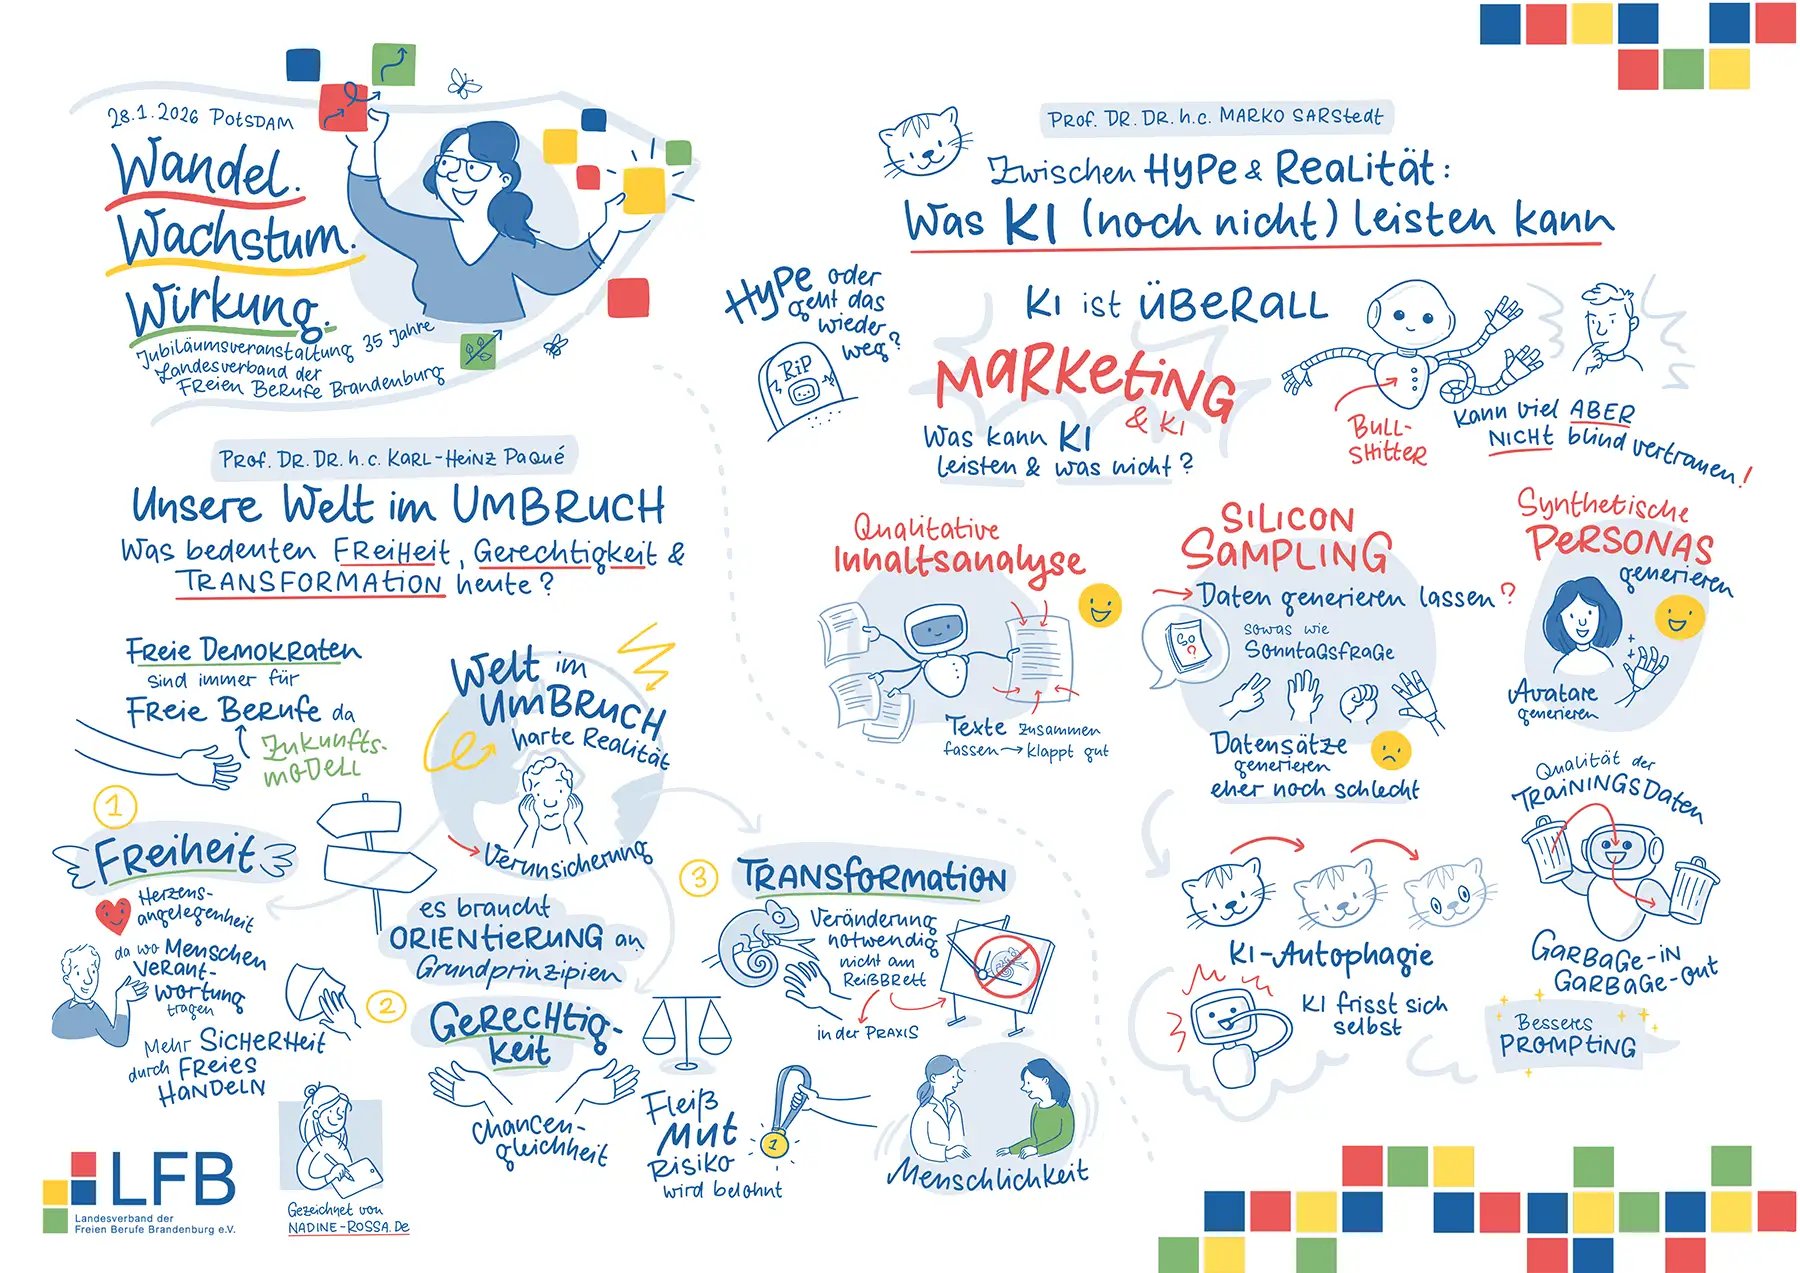 28.1.2026 Potsdam
Wandel.
Wachstum.
Wirkung.
Jubiläumsveranstaltung 35 Jahre
Landesverband der
Freien Berufe Brandenburg
Prof. Dr. Dr. h.c. Karl-Heinz Paqué
Unsere Welt im UMBRUCH
Was bedeuten Freiheit, Gerechtigkeit &
TRANSFORMATION heute?
Freie Demokraten
sind immer für
Freie Berufe da
Zukunfts-
modell
Welt im
UMBRUCH
harte Realität
Verunsicherung
1
Freiheit
Herzens-
angelegenheit
da wo Menschen
Verant-
wortung
tragen
Mehr Sicherheit
durch freies
Handeln
es braucht
ORIENTIERUNG an
Grundprinzipien
2
Gerechtig-
keit
Chancen-
gleichheit
Fleiß
Mut
Risiko
wird belohnt
1
3
TRANSFORMATION
Veränderung
notwendig
nicht am
Reißbrett
in der PRAXIS
Menschlichkeit
LFB
Landesverband der
Freien Berufe Brandenburg e.V.
Gezeichnet von
NADINE-ROSSA.De
Prof. Dr. Dr. h.c. MARKO SARStedt
Zwischen Hype & Realität:
Was KI (noch nicht) leisten kann
Hype oder
geht das
wieder
weg?
RIP
KI ist ÜBERALL
MARKETING
& KI
Was kann KI
leisten & was nicht?
BULL-
SHITTER
Kann viel ABER
NICHT blind vertrauen!
Qualitative
Inhaltsanalyse
Texte zusammen
fassen → klappt gut
SILICON
SAMPLING
→ Daten generieren lassen?
sowas wie
Sonntagsfrage
SO
?
Datensätze
generieren
eher noch schlecht
Synthetische
PERSONAS
generieren
Avatare
generieren
KI-Autophagie
KI frisst sich
selbst
Qualität der
TRAININGSDaten
GARBAGE-IN
GARBAGE-OUT
Besseres
PROMPTING